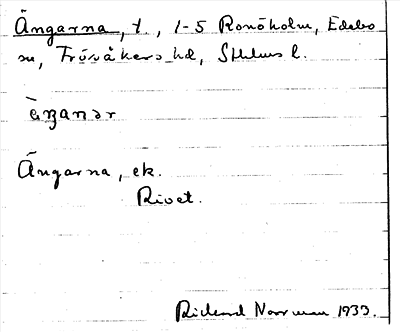 Ängarna, t., 1-5 Ronöholm, Edebo
sn, Frösåkers hd, Sthlms l.
Ängarna, ek.
Rivet.
Rickard Norrman 1933.